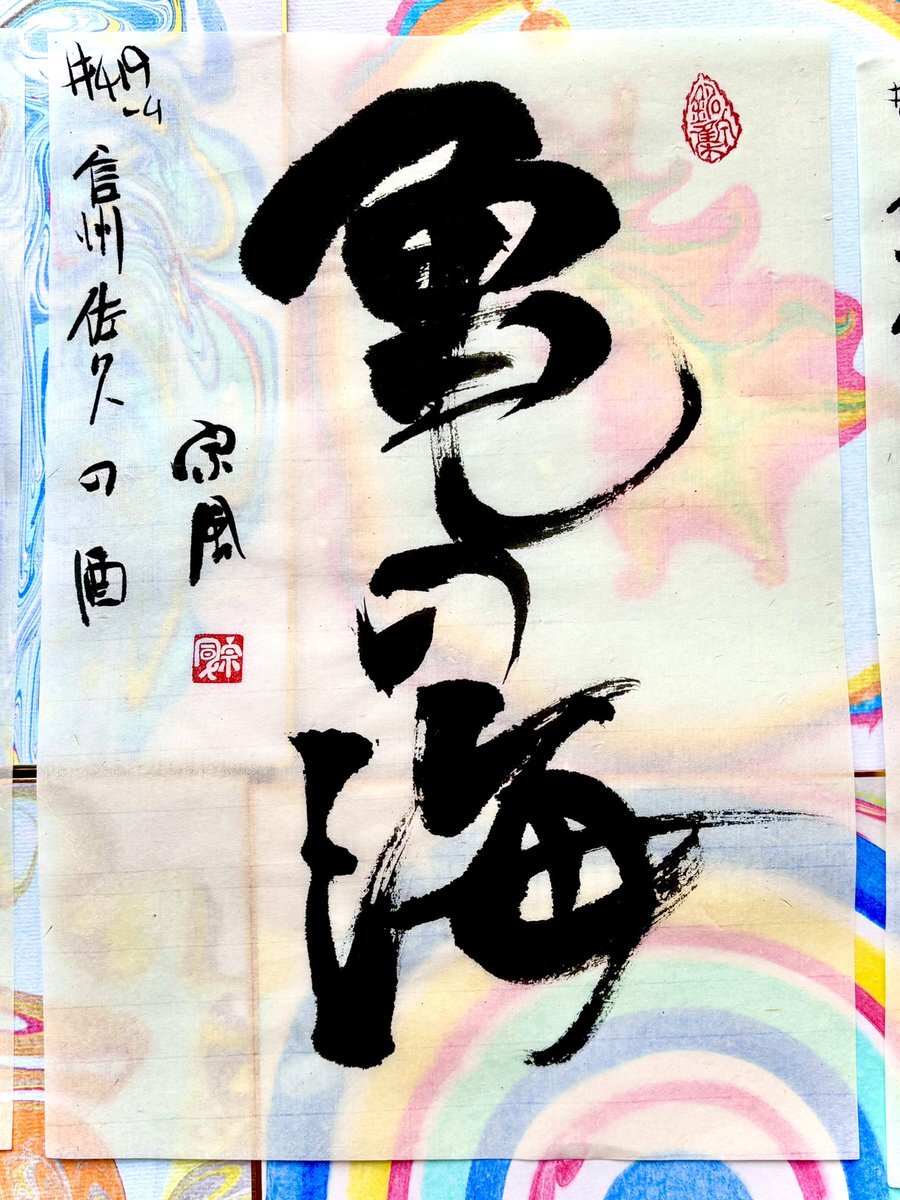 亀の海
#419
-4
信州佐久の酒
宗風